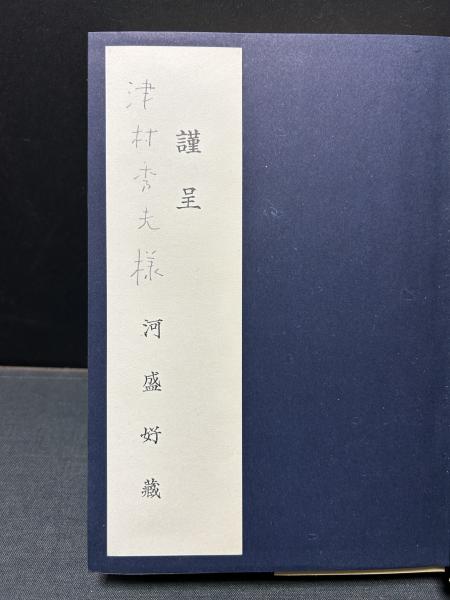 謹呈
津村秀夫様
河盛好藏